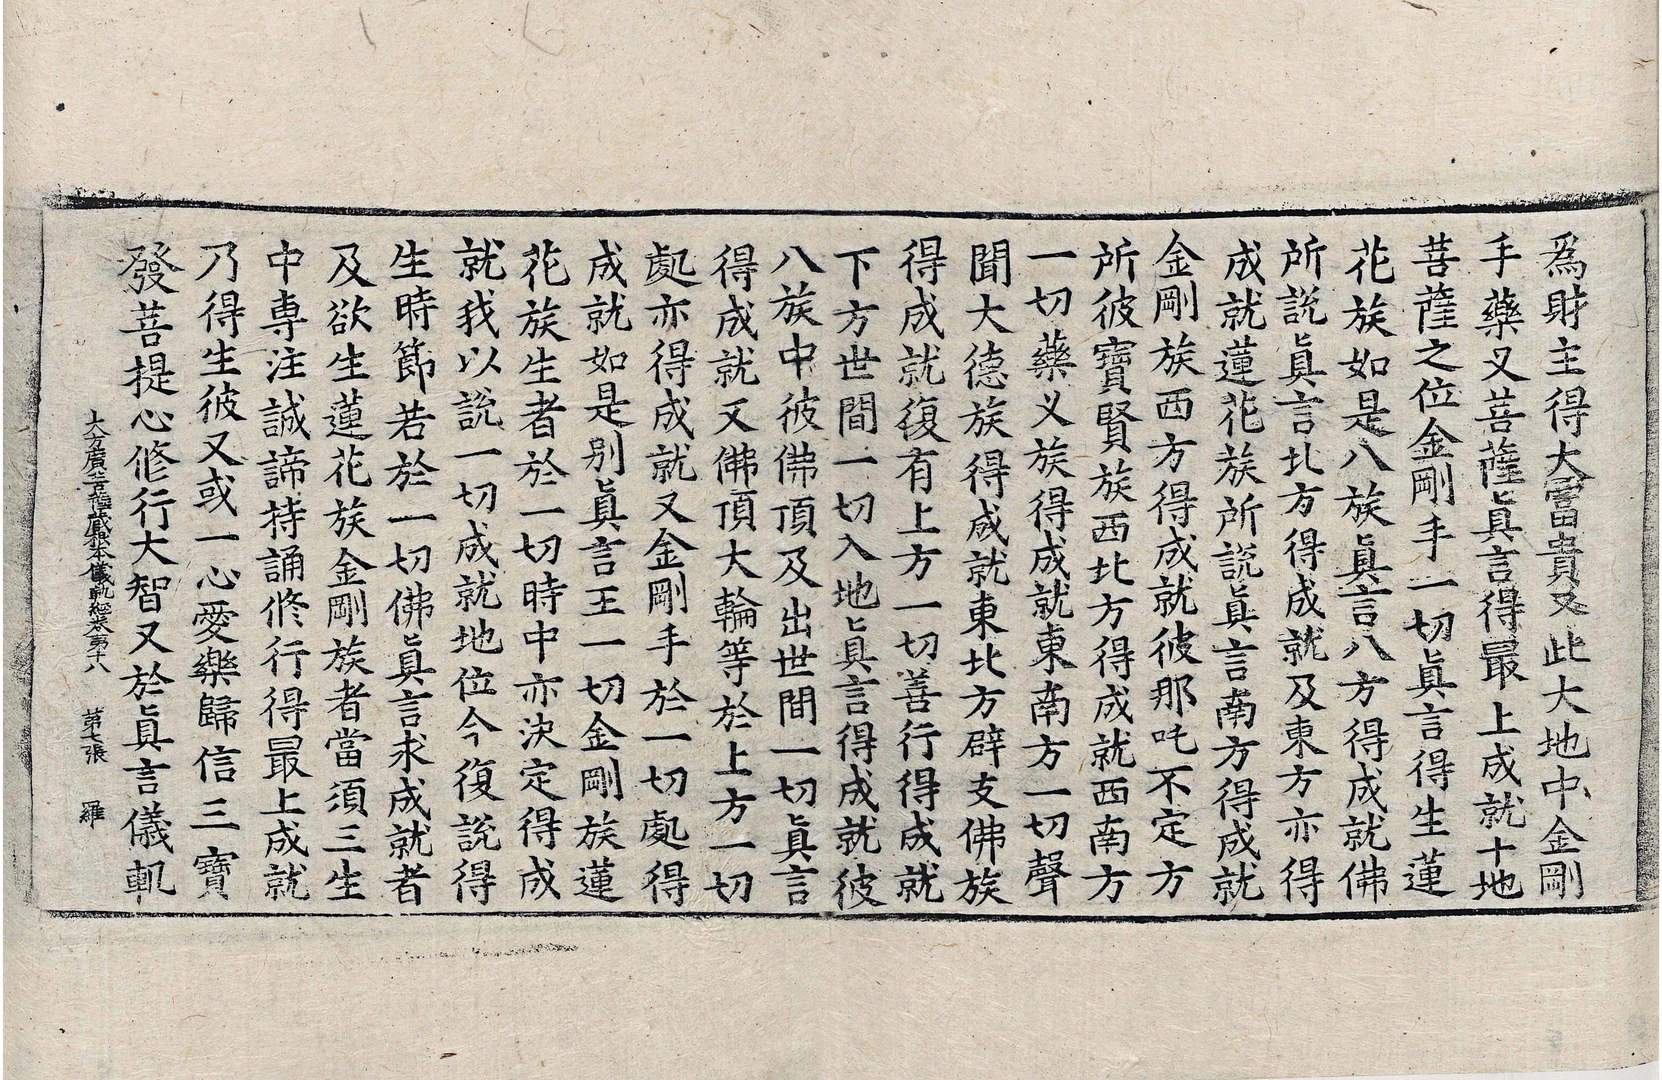 為財主得大富貴又此大地中金剛
手藥叉菩薩真言得最上成就十地
菩薩之位金剛手一切真言得生蓮
花族如是八族真言八方得成就佛
所說真言北方得成就及東方亦得
成就蓮花族所說真言南方得成就
金剛族西方得成就彼那吒不定方
所彼寶賢族西北方得成就西南方
一切藥叉族得成就東南方一切聲
聞大德族得成就東北方辟支佛族
得成就復有上方一切善行得成就
下方世間一切入地真言得成就彼
八族中彼佛頂及出世間一切真言
得成就又佛頂大輪等於上方一切
處亦得成就又金剛手於一切處得
成就如是別真言王一切金剛族蓮
花族生者於一切時中亦決定得成
就我以說一切成就地位今復說得
生時節若於一切佛真言求成就者
及欲生蓮花族金剛族者當須三生
中專注誠諦持誦修行得最上成就
乃得生彼又或一心愛樂歸信三寶
發菩提心修行大智又於真言儀軌
大方廣菩薩藏根本儀軌經卷第十八 第七張 羅